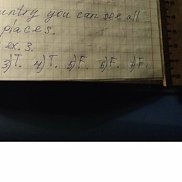 untry you can see all
places.
ex. 3.
3) T. 4) T. 5) F. 6) F. 7) F.